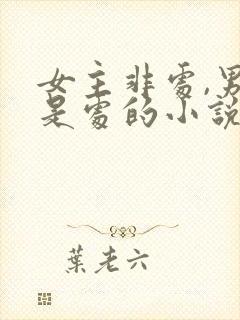 女主非處,男
是處的小說
葉老六